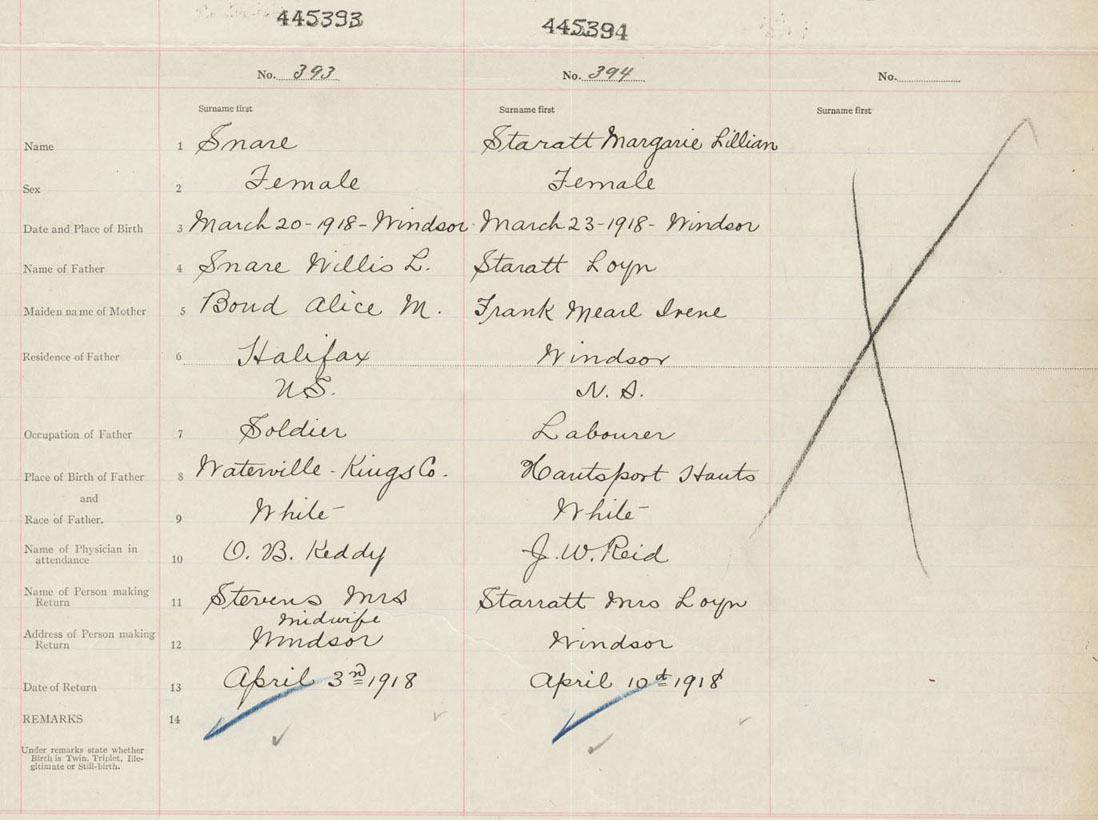 445393 445394
No. 393 No. 394 No.
Surname first Surname first Surname first
Name 1 Snare Staratt Margarie Lillian
Sex 2 Female Female
Date and Place of Birth 3 March 20-1918- Windsor March 23-1918- Windsor
Name of Father 4 Snare Willis L. Staratt Loyn
Maiden name of Mother 5 Bond Alice M. Frank Mearl Irene
Residence of Father 6 Halifax Windsor
N.S. N.S.
Occupation of Father 7 Soldier Labourer
Place of Birth of Father 8 Waterville - Kings Co. Hantsport Hants
and
Race of Father. 9 White White
Name of Physician in
attendance 10 O. B. Keddy J. W. Reid
Name of Person making
Return 11 Stevens Mrs Starratt Mrs Loyn
midwife
Address of Person making
Return 12 Windsor Windsor
Date of Return 13 April 3rd 1918 April 10th 1918
REMARKS 14
Under remarks state whether
Birth is Twin, Triplet, Ille-
gitimate or Still-birth.